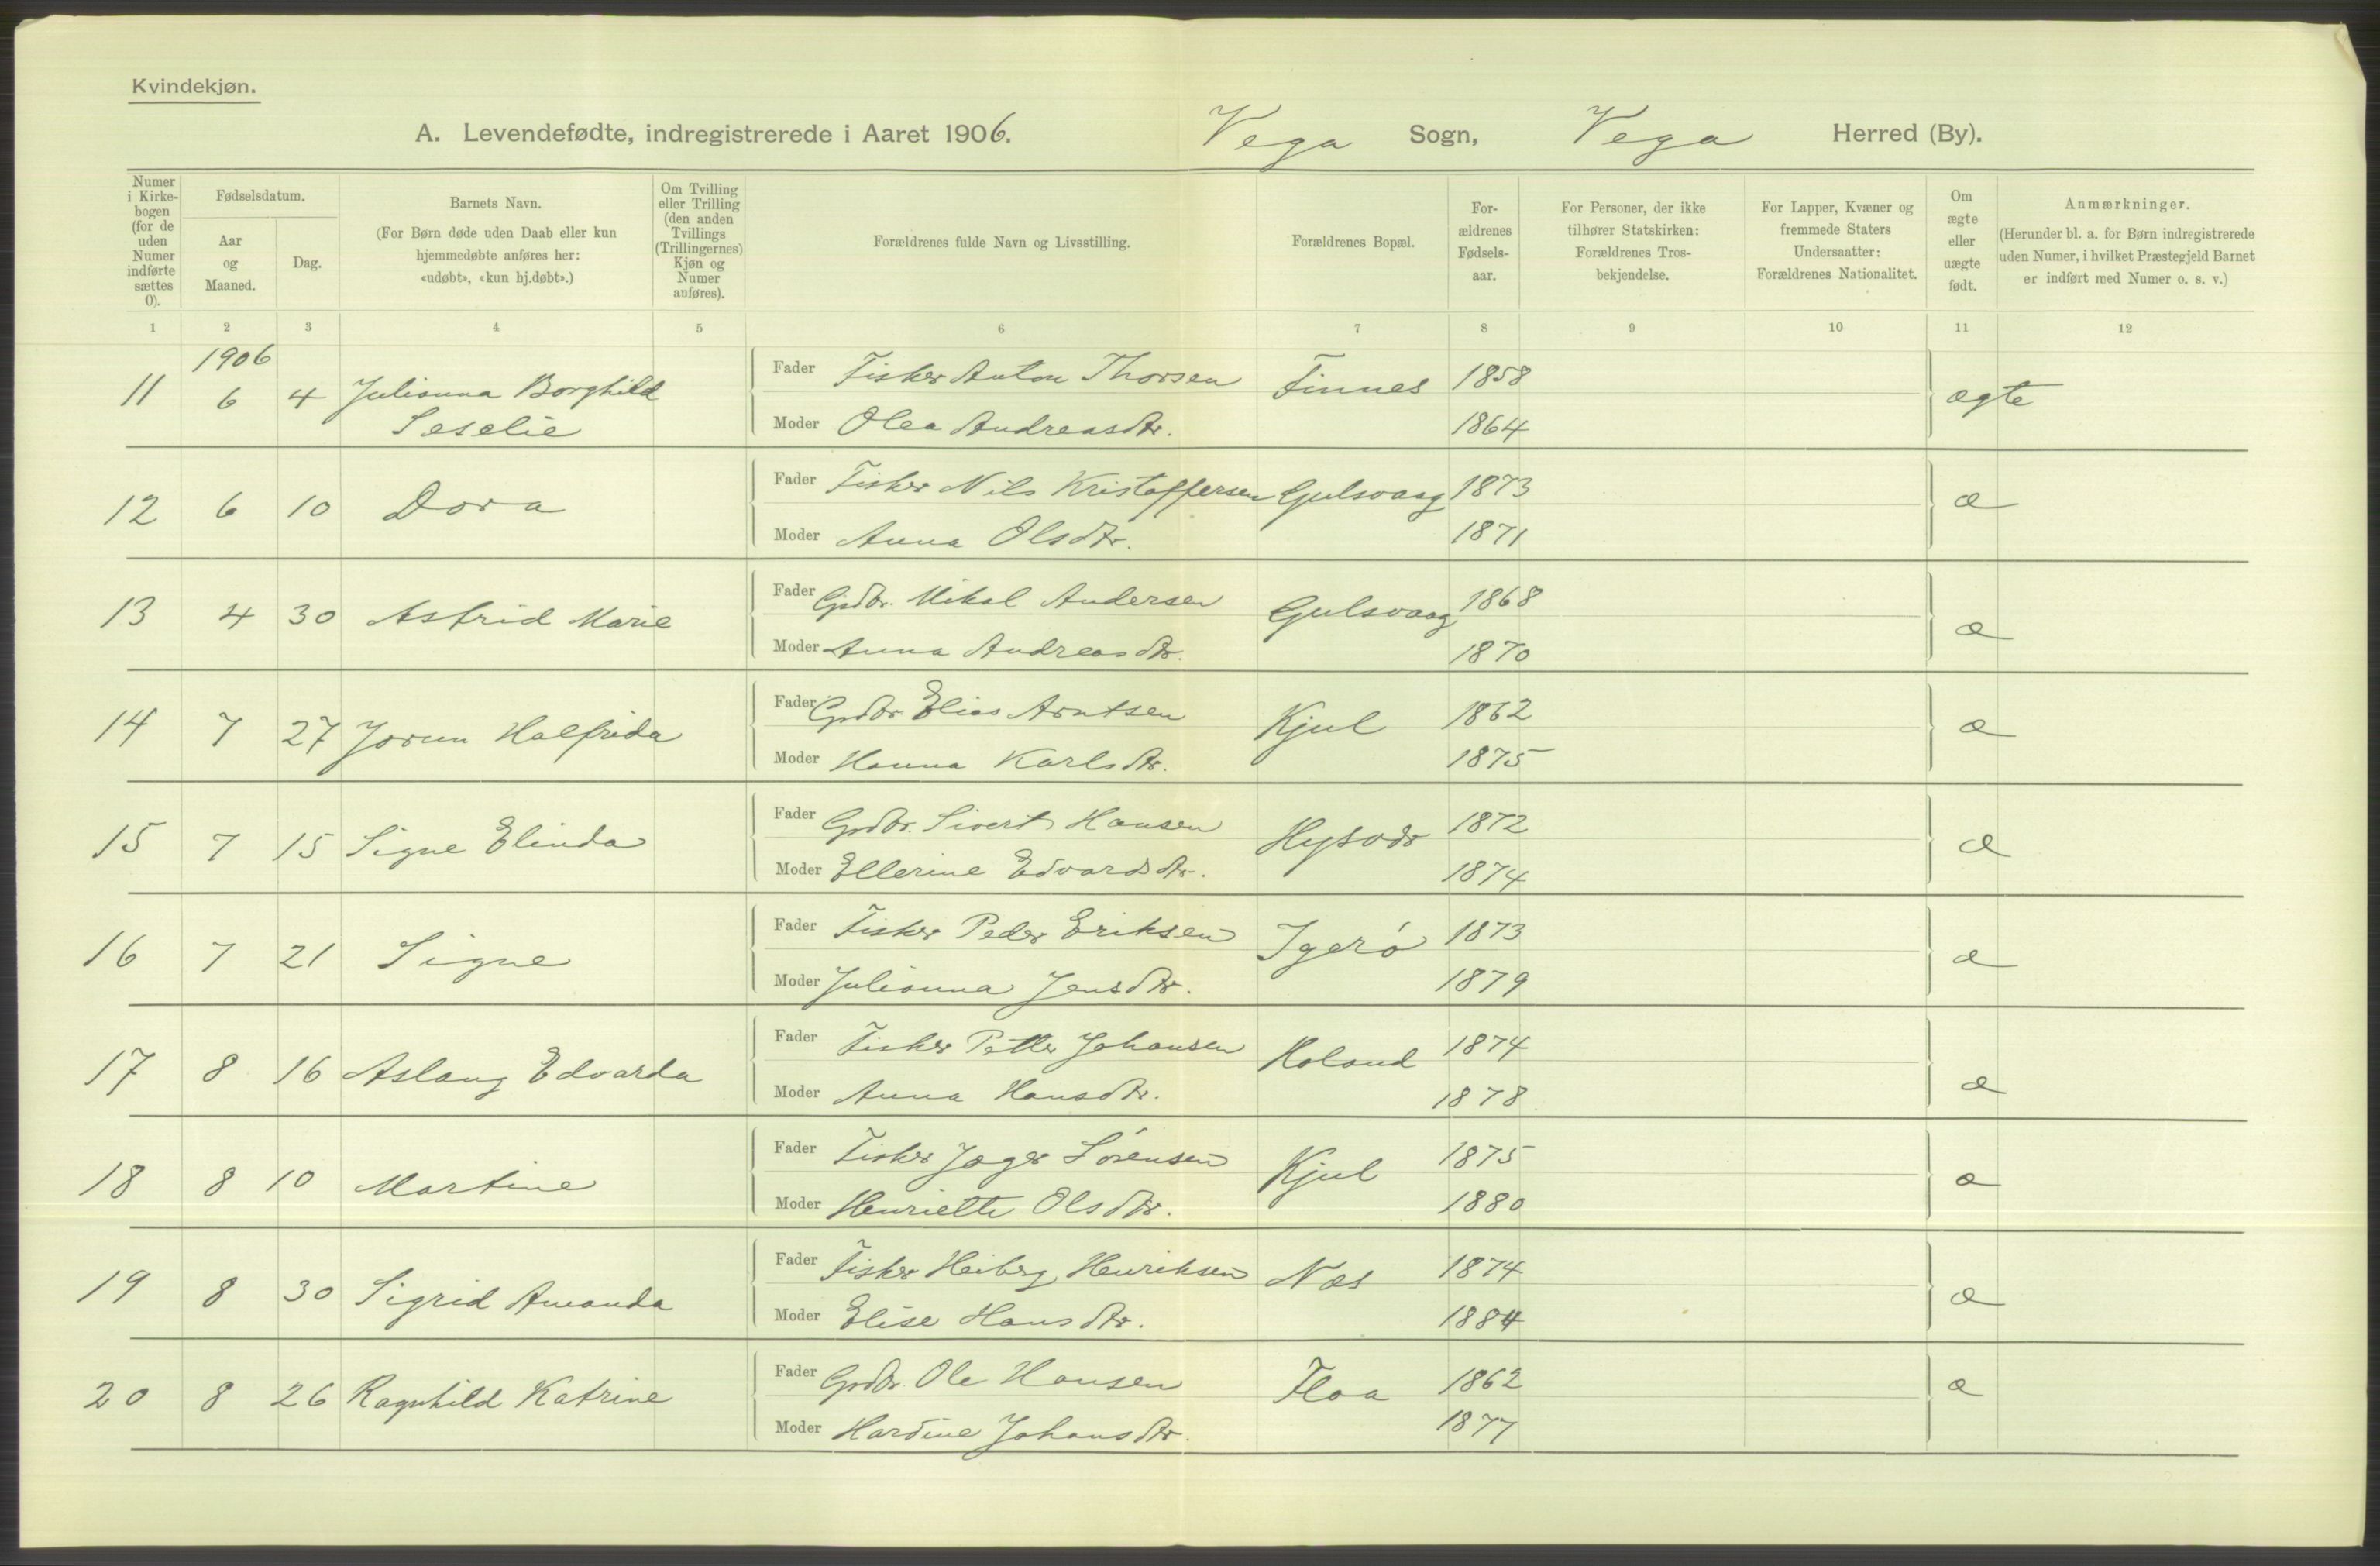 Kvindekjøn.
A. Levendefødte, indregistrerede i Aaret 1906. Vega Sogn, Vega Herred (By).
Numer i Kirkebogen (for de uden Numer indførte sættes 0).
Fødselsdatum.
Aar og Maaned.
Dag.
Barnets Navn.
(For Børn døde uden Daab eller kun hjemmedøbte anføres her: «udøbt», «kun hj.døbt».)
Om Tvilling eller Trilling (den anden Tvillings (Trillingernes) Kjøn og Numer anføres).
Forældrenes fulde Navn og Livsstilling.
Forældrenes Bopæl.
Forældrenes Fødselsaar.
For Personer, der ikke tilhører Statskirken: Forældrenes Trosbekjendelse.
For Lapper, Kvæner og fremmede Staters Undersaatter: Forældrenes Nationalitet.
Om ægte eller uægte født.
Anmærkninger.
(Herunder bl. a. for Børn indregistrerede uden Numer, i hvilket Præstegjeld Barnet er indført med Numer o. s. v.)
1 2 3 4 5 6 7 8 9 10 11 12
1906
11 6 4 Julianna Borghild Seselie Fader Fisker Anton Thorsen Finnes 1858 ægte
Moder Olea Andreasdtr. 1864
12 6 10 Dora Fader Fisker Nils Kristoffersen Gulsvaag 1873 æ
Moder Anna Olsdtr. 1871
13 4 30 Astrid Marie Fader Grdbr. Mikal Andersen Gulsvaag 1868 æ
Moder Anna Andreasdtr. 1870
14 7 27 Jorun Halfrida Fader Grdbr. Elias Arntsen Kjul 1862 æ
Moder Hanna Karlsdtr. 1875
15 7 15 Signe Elinda Fader Grdbr. Sivert Hansen 1872 æ
Moder Ellerine Edvardsdtr. 1874
16 7 21 Signe Fader Fisker Peder Eriksen Igerø 1873 æ
Moder Julianna Jensdtr. 1879
17 8 16 Aslaug Edvarda Fader Fisker Petter Johansen Holand 1874 æ
Moder Anna Hansdtr. 1878
18 8 10 Martine Fader Fisker Jæger Sørensen Kjul 1875 æ
Moder Henriette Olsdtr. 1880
19 8 30 Sigrid Amanda Fader Fisker Heiberg Henriksen Næs 1874 æ
Moder Elise Hansdtr. 1884
20 8 26 Ragnhild Katrine Fader Grdbr. Ole Hansen Floa 1862 æ
Moder Hardine Johansdtr. 1877